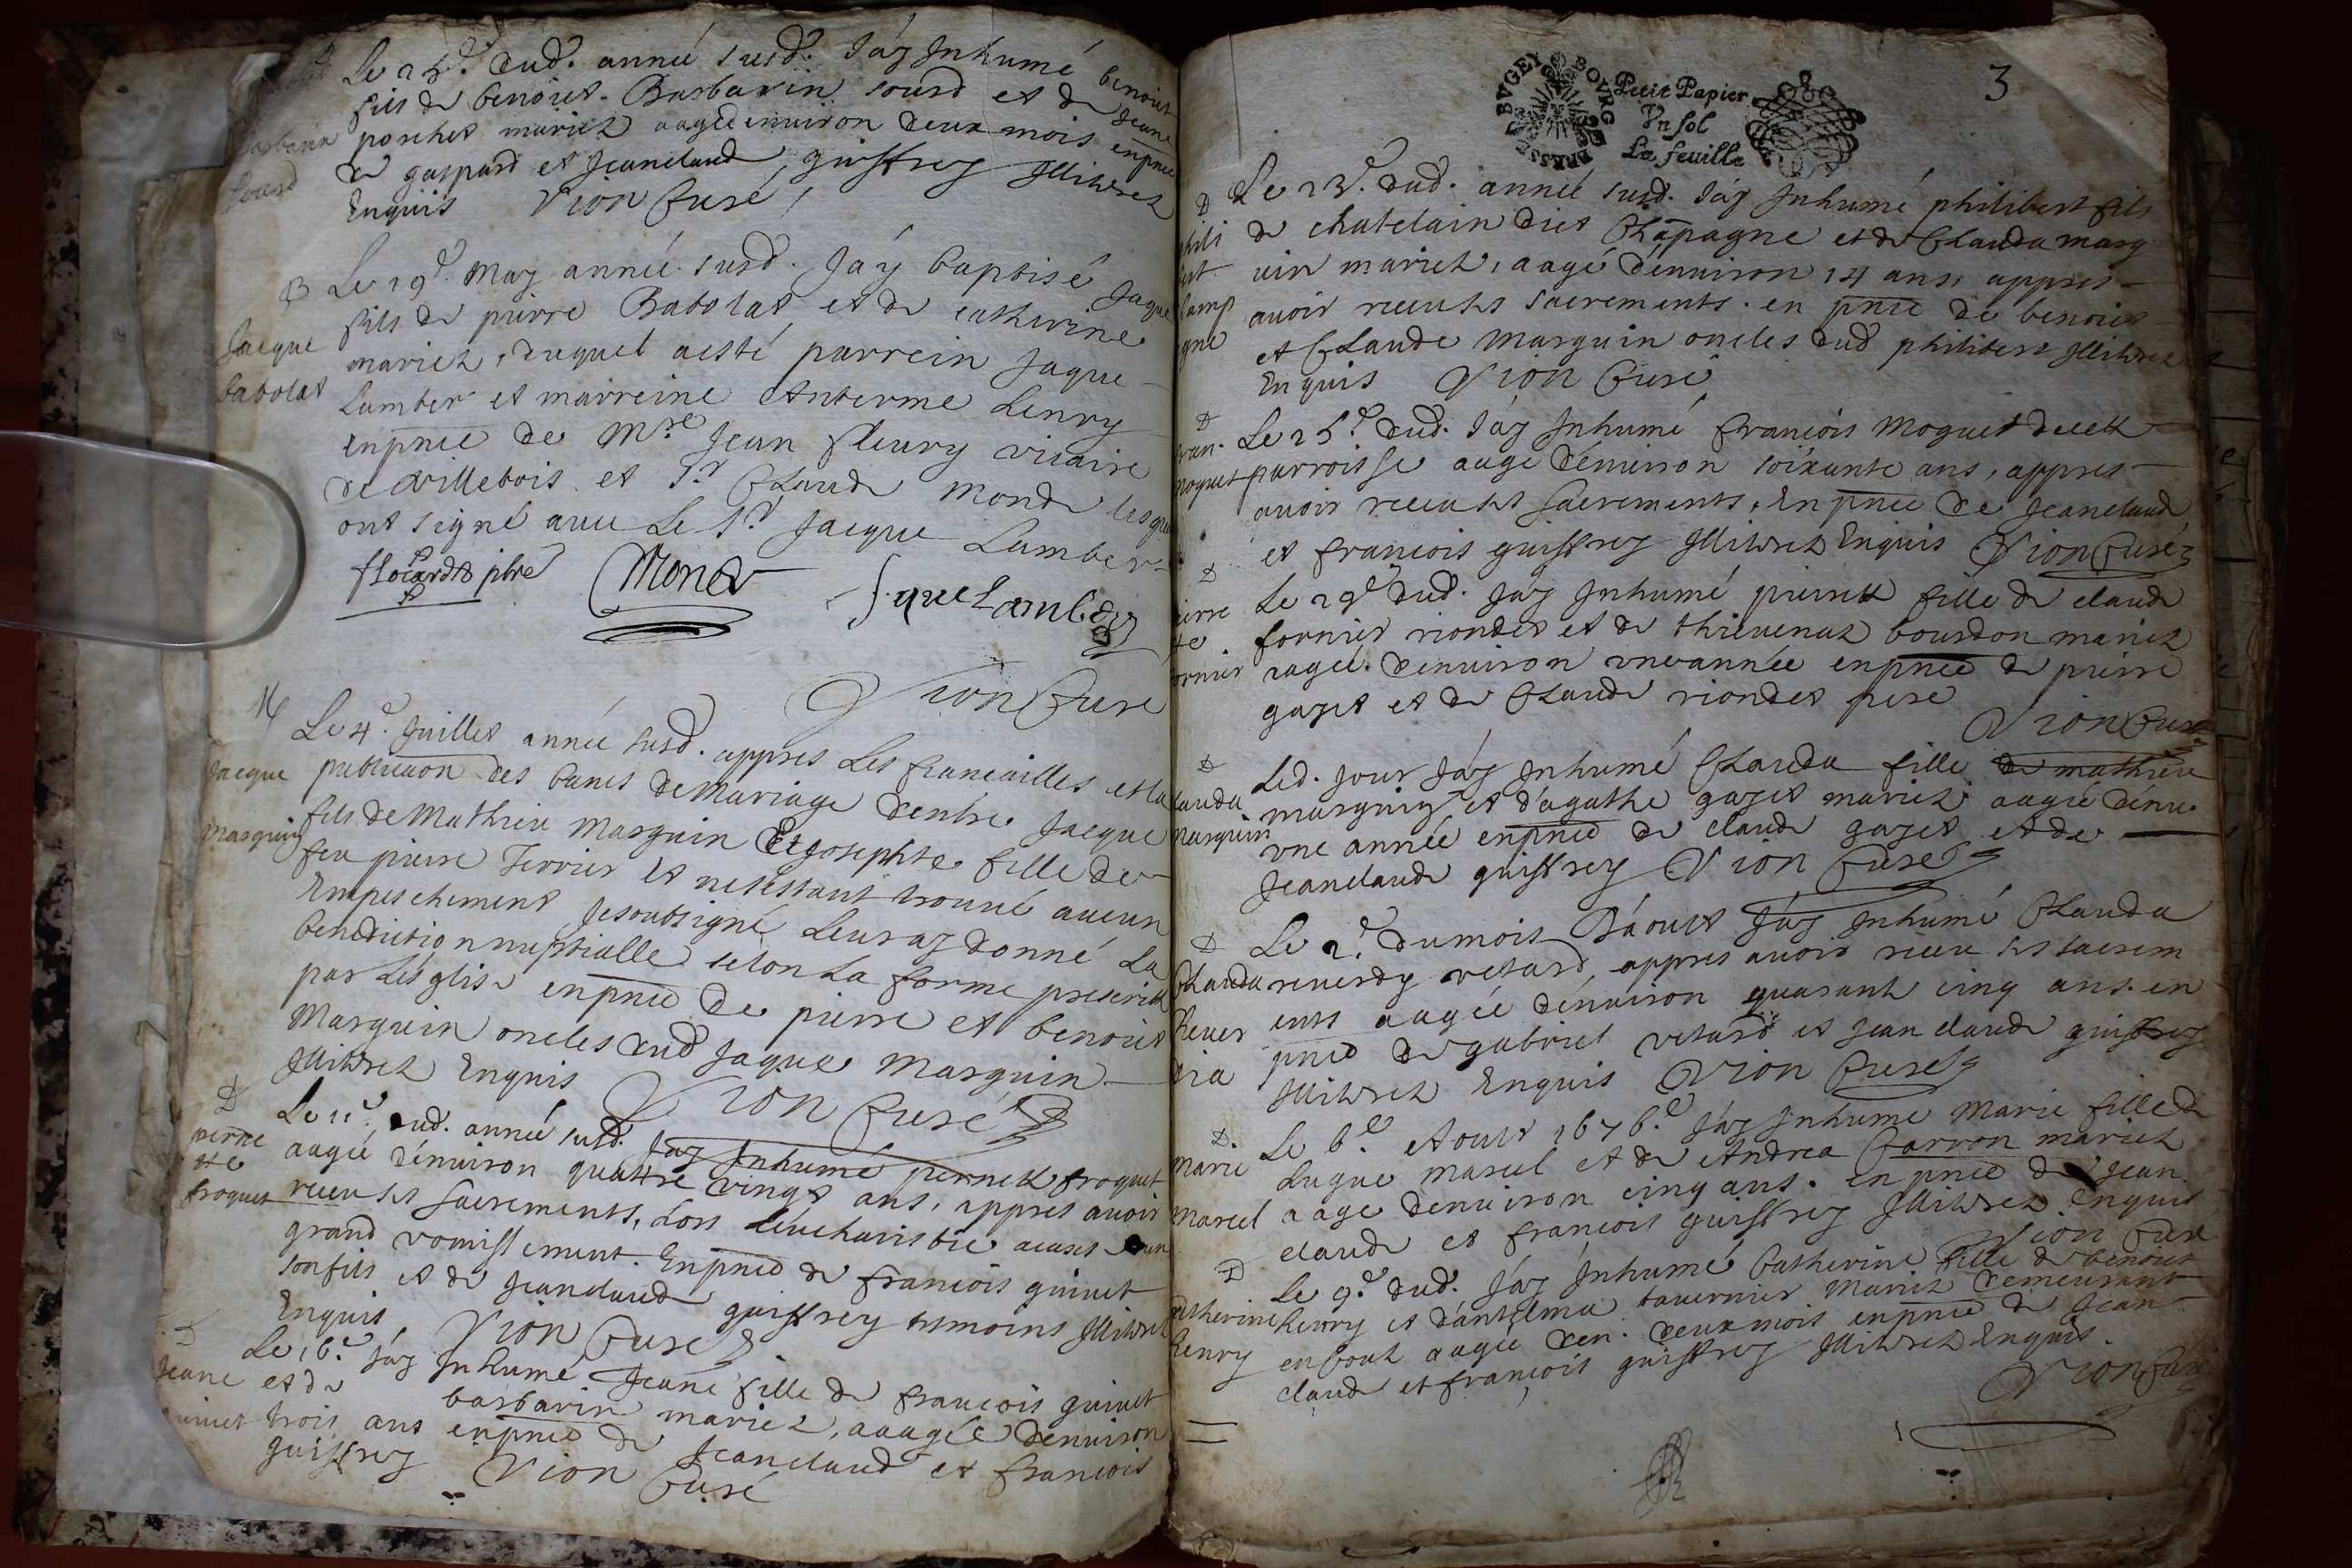 Le 25e. dud. année susd. Jáy Inhumé benoist
fils de benoist Barbarin sourd et de Jeane
porchet mariez aagé enuiron deux mois enpnce
de gaspard et Jeanclaude guiffrey Illitrez
Enquis Vion Curé
B
Le 19e. May année susd. Jáy baptisé Jaque
fils de pierre Babolat et de catherine
Jacque
mariez, duquel aesté parrein Jaque
babolat
Lamber et marreine Anterme Lenry
enpnce de Mre Jean fleury vicaire
de villebois et Sr Claude Mond lesqu
ont signé auec Le Sr Jacque Lamber
Mond
Jaque Lamber
Vion Cure
M
Le 4e. Juillet année susd. appres Les fiancailles et la
Jacque
publication des bancs de Mariage dentre Jacque
Marguin
fils de Mathieu Marguin Et Josephte fille de
feu pierre Terrier et nesestant trouué aucun
Empeschement Jesoubsigné Leur ay donné La
benediction nuptialle selon La forme prescrite
par Lesglise enpnce de pierre et benoist
Marguin oncles dud Jaque Marguin
Illitrez Enquis Vion Curé
D
Le 11e. dud. année susd. Jay Inhumé pernette froquet
perne
tte
aagée dénuiron quattre vingt ans, appres auoir
froquet
receu ses sacrements, hors léucharistie acause dun
grand vomissement. Enpnce de francois guinet
son fils et de Jeanclaude guiffrey tesmoins Illitrez
Enquis, Vion Curé
D
Le 16e. Jay Inhumé Jeane fille de francois guinet
Jeane
et de barbarin mariez, aagée denuiron
guinet
trois ans enpnce de Jeanclaude et francois
guiffrey Vion Curé
3
BRESSE BVGEY BOVRG
Petit Papier
Vn sol
La feuille
D
Le 23e. dud. année susd. Jáy Inhumé philibert fils
de chatelain dict Chāpagne et de Clauda marg
uin mariez, aagé dénuiron 14 ans, appres
auoir receu ses sacrements. en pnce de benoist
et Claude Marguin oncles dud philibert Illitrez
Enquis Vion Curé
D
Le 25e. dud. Jáy Inhumé francois Moguet decette
Moguet
parroisse aagé dénuiron soixante ans, appres
auoir receu ses sacrements, Enpnce de Jeanclaude
et francois guiffrey Illitrez Enquis Vion Curé
D
Le 29e dud. Jáy Inhumé pierrette fille de claude
fornier riondet et de thieuenaz bourdon mariez
aagée. denuiron vne année enpnce de pierre
gazet et de Claude riondet pere
Vion Curé
D
Led. jour Jáy Inhumé Clauda fille de mathieu
marguin et d'agathe gazet mariez aagée dénu.
Marguin
vne année enpnce de claude gazet et de
Jeanclaude guiffrey Vion Curé
D
Le 2e. dumois Dáoust Jáy Inhumé Clauda
Clauda
reuerdy retard, appres auoir receu ses sacrem
Reuer
ents aagée dénuiron quarante cinq ans. en
dia
pnce de gabriel retard et Jean claude guiffrey
Illitrez Enquis Vion Curé
D.
Le 6e Aoust 1676.e Jáy Inhumé Marie fille de
Marie
Lugue Marcel et de Andrea Carron mariez
Marcel
aagé denuiron cinq ans. enpnce de Jean
claude et francois guiffrey Illitrez Enquis
Vion Curé
D
Le 9e. dud. Jáy Inhumé Catherine fille de benoist
Catherine
henry et dántelma tauernier Mariez demeurant
henry
enbout aagée den. deux mois enpnce de Jean
claude et françois guiffrey Illitrez Enquis.
Vion Curé